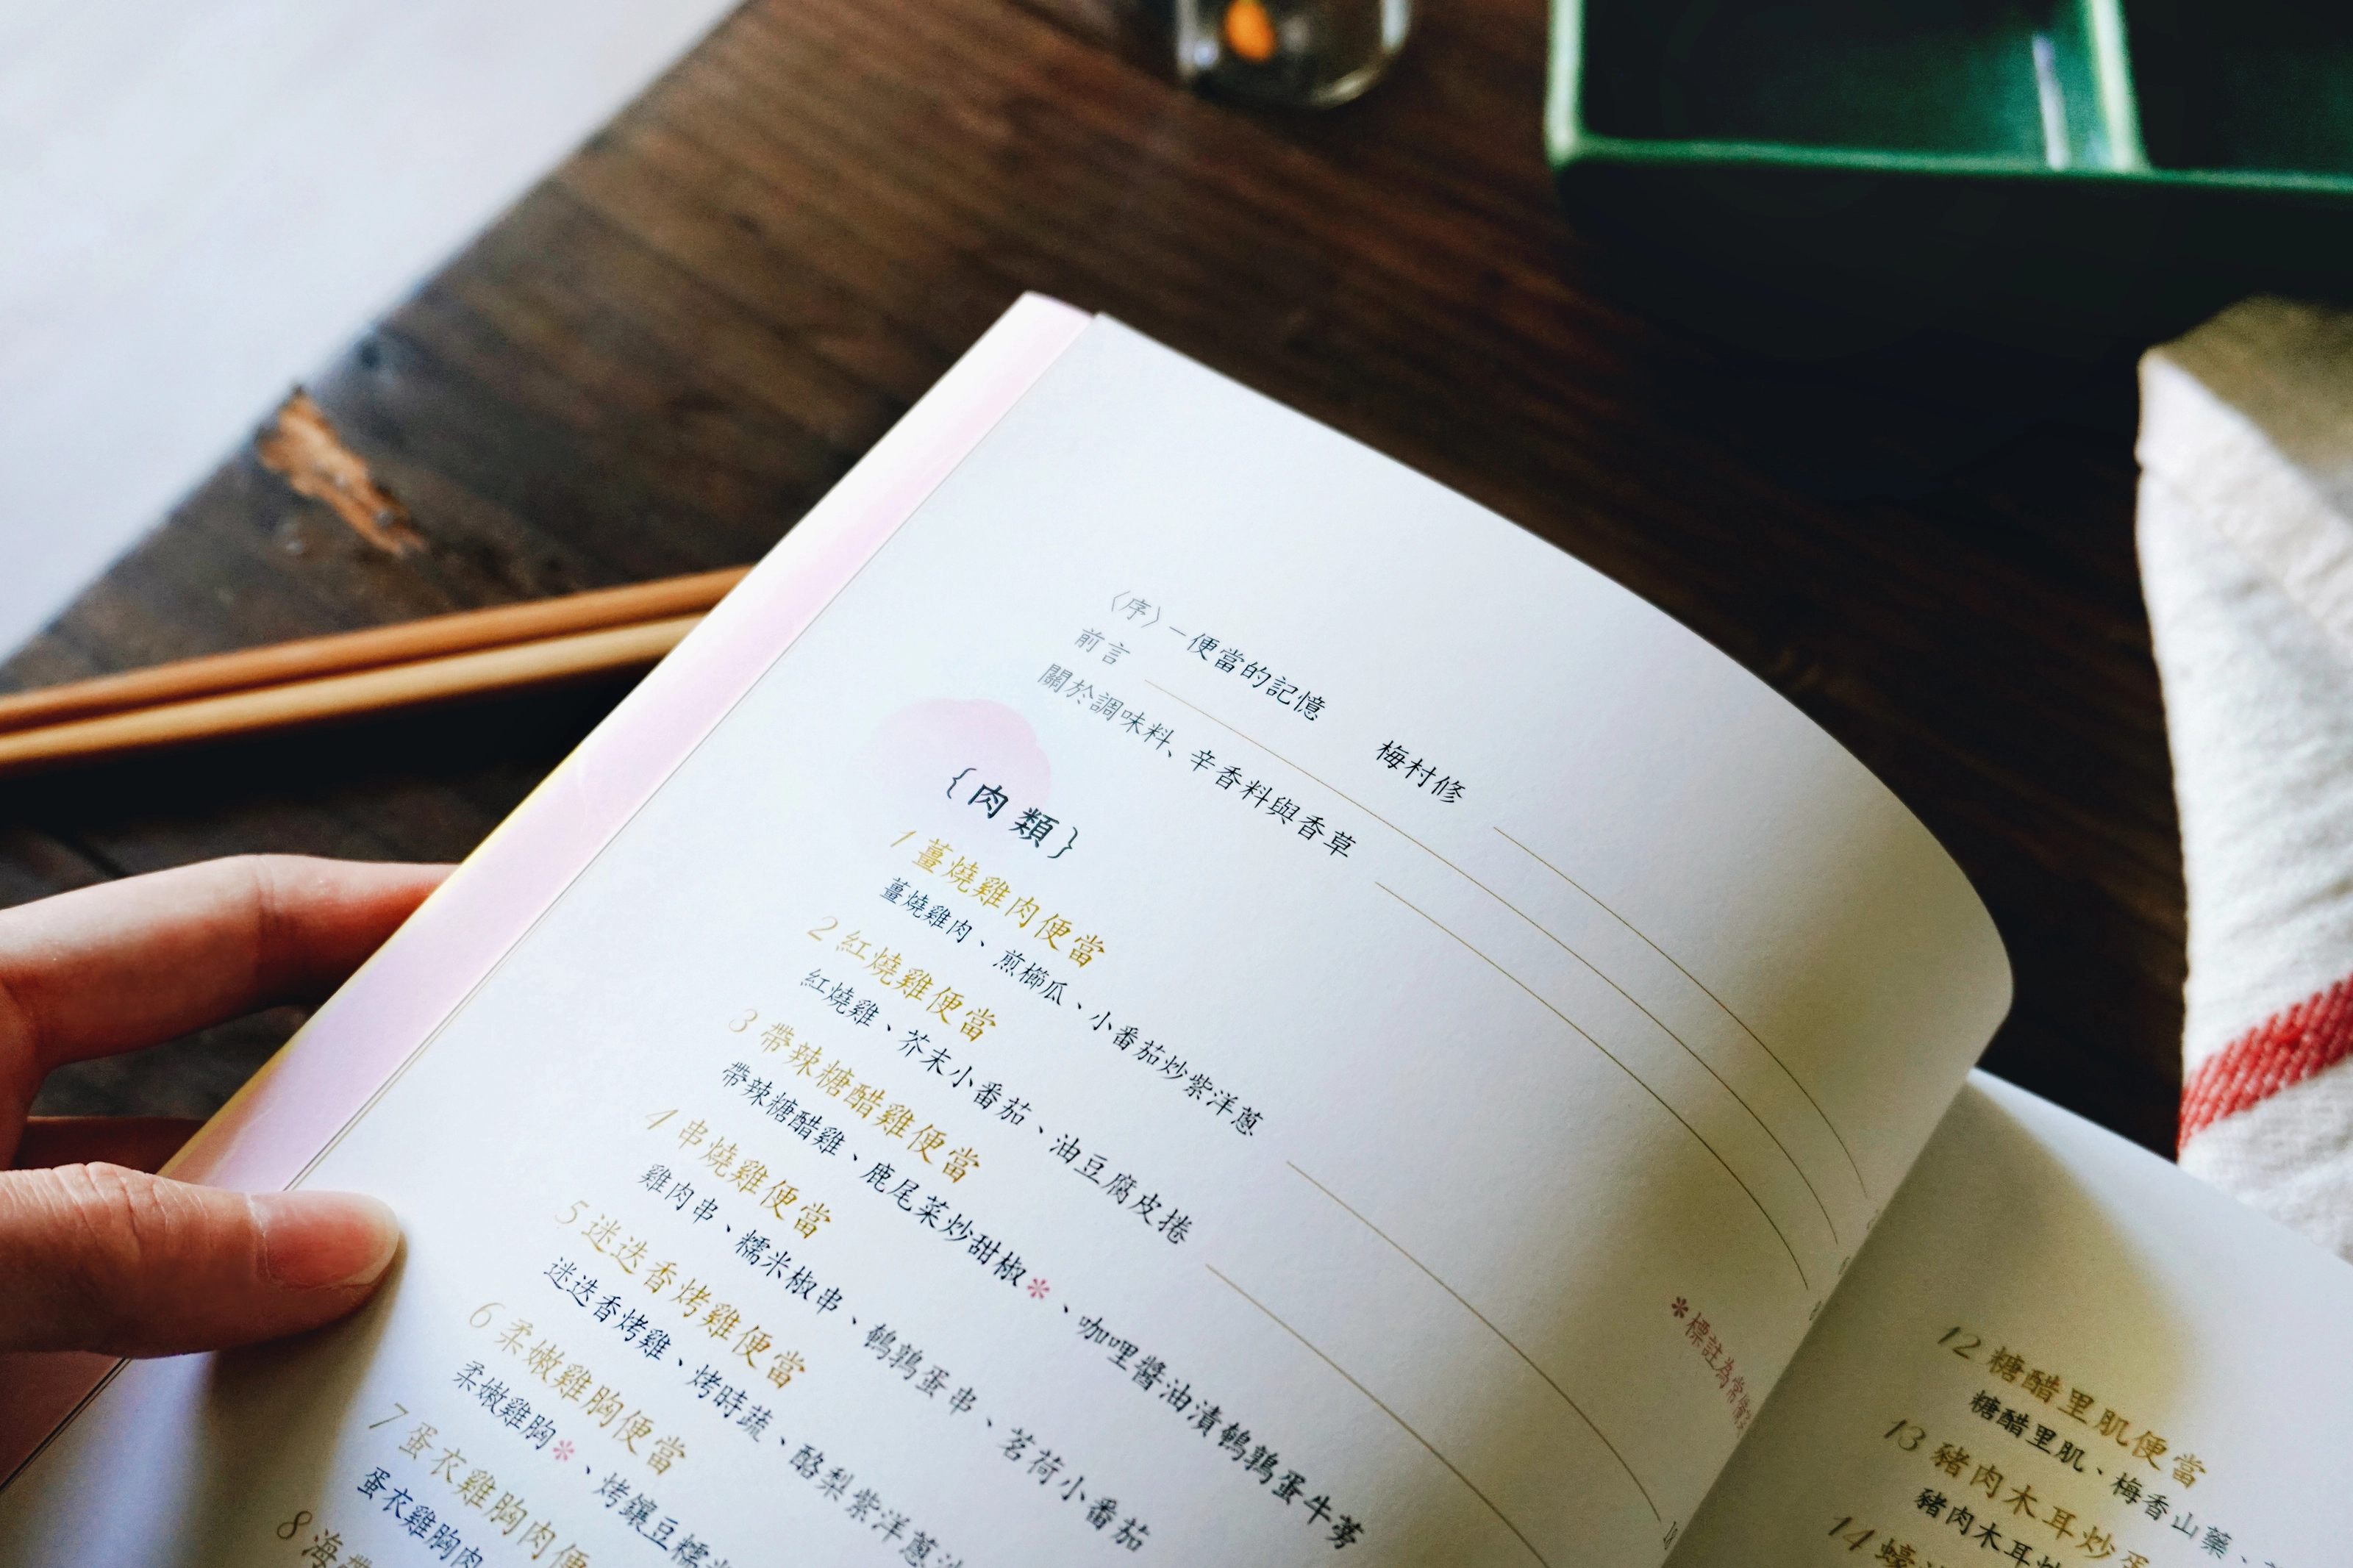 〈序〉－便當的記憶 梅村修
前言
關於調味料、辛香料與香草
{肉類}
1 薑燒雞肉便當
薑燒雞肉、煎櫛瓜、小番茄炒紫洋蔥
2 紅燒雞便當
紅燒雞、芥末小番茄、油豆腐皮捲
3 帶辣糖醋雞便當
帶辣糖醋雞、鹿尾菜炒甜椒*、咖哩醬油漬鵪鶉蛋牛蒡
4 串燒雞便當
雞肉串、糯米椒串、鵪鶉蛋串、茗荷小番茄
5 迷迭香烤雞便當
迷迭香烤雞、烤時蔬、酪梨紫洋蔥
6 柔嫩雞胸便當
柔嫩雞胸*、烤鑲豆糯
7 蛋衣雞胸肉便
蛋衣雞胸肉
8 海帶
*標註為常備
12 糖醋里肌便當
糖醋里肌、梅香山藥、
13 豬肉木耳炒
豬肉木耳炒
14 蠔